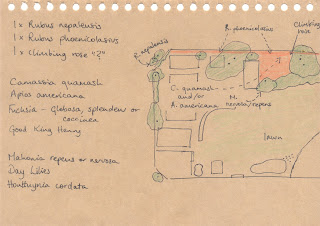 1x Rubus nepalensis
1x Rubus phoenicolasius
1x Climbing rose "?"
Camassia quamash
Apios americana
Fuchsia - Globosa, splendens or
coccinea
Good King Henry
Mahonia repens or nervosa
Day Lilies
Houttuynia cordata
R. nepalensis
R. phoenicolasius
Climbing
rose
C. quamash
and/or
A. americana
M.
nervosa/repens
lawn